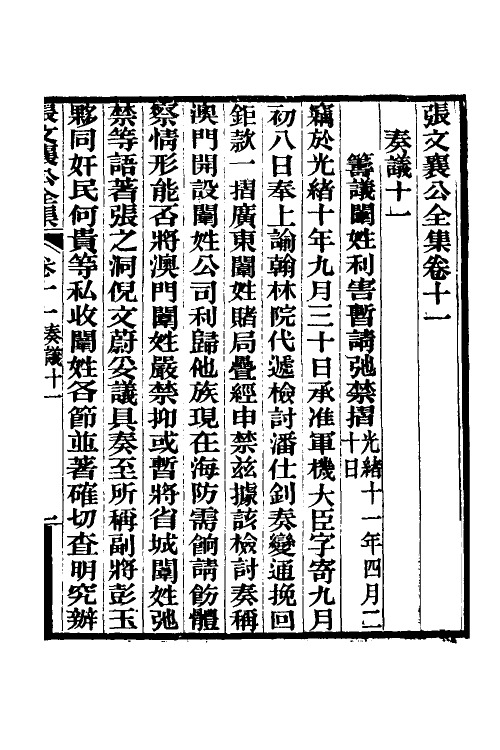 張文襄公全集卷十一
奏議十一
籌議闈姓利害暫請弛禁摺光緒十一年四月二十日
竊於光緒十年九月三十日承准軍機大臣字寄九月
初八日奉上諭翰林院代遞檢討潘仕釗奏變通挽回
鉅款一摺廣東闈姓賭局疊經申禁茲據該檢討奏稱
澳門開設闈姓公司利歸他族現在海防需餉請飭體
察情形能否將澳門闈姓嚴禁抑或暫將省城闈姓弛
禁等語著張之洞倪文蔚妥議具奏至所稱副將彭玉
夥同奸民何貴等私收闈姓各節並著確切查明究辦
張文襄公全集 卷十一 奏議十一 一